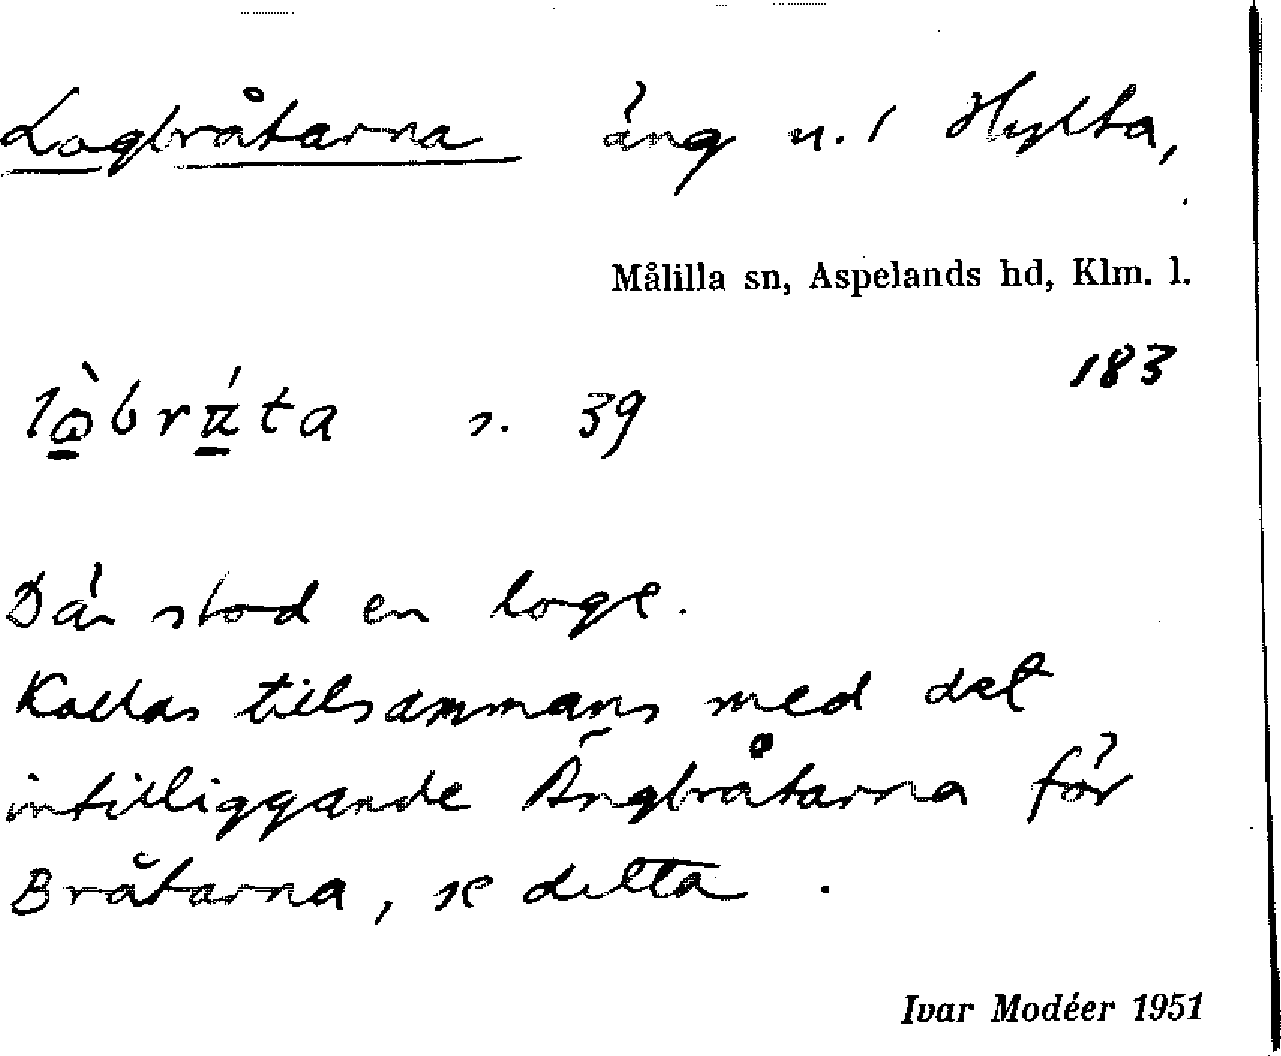 Logbråtarna äng n. 1 Hylta,
Målilla sn, Aspelands hd, Klm. l.
183
s. 39
Där stod en loge.
Kallas tillsammans med det
intilliggande Ängbråtarna för
Bråtarna, se detta .
Ivar Modéer 1951